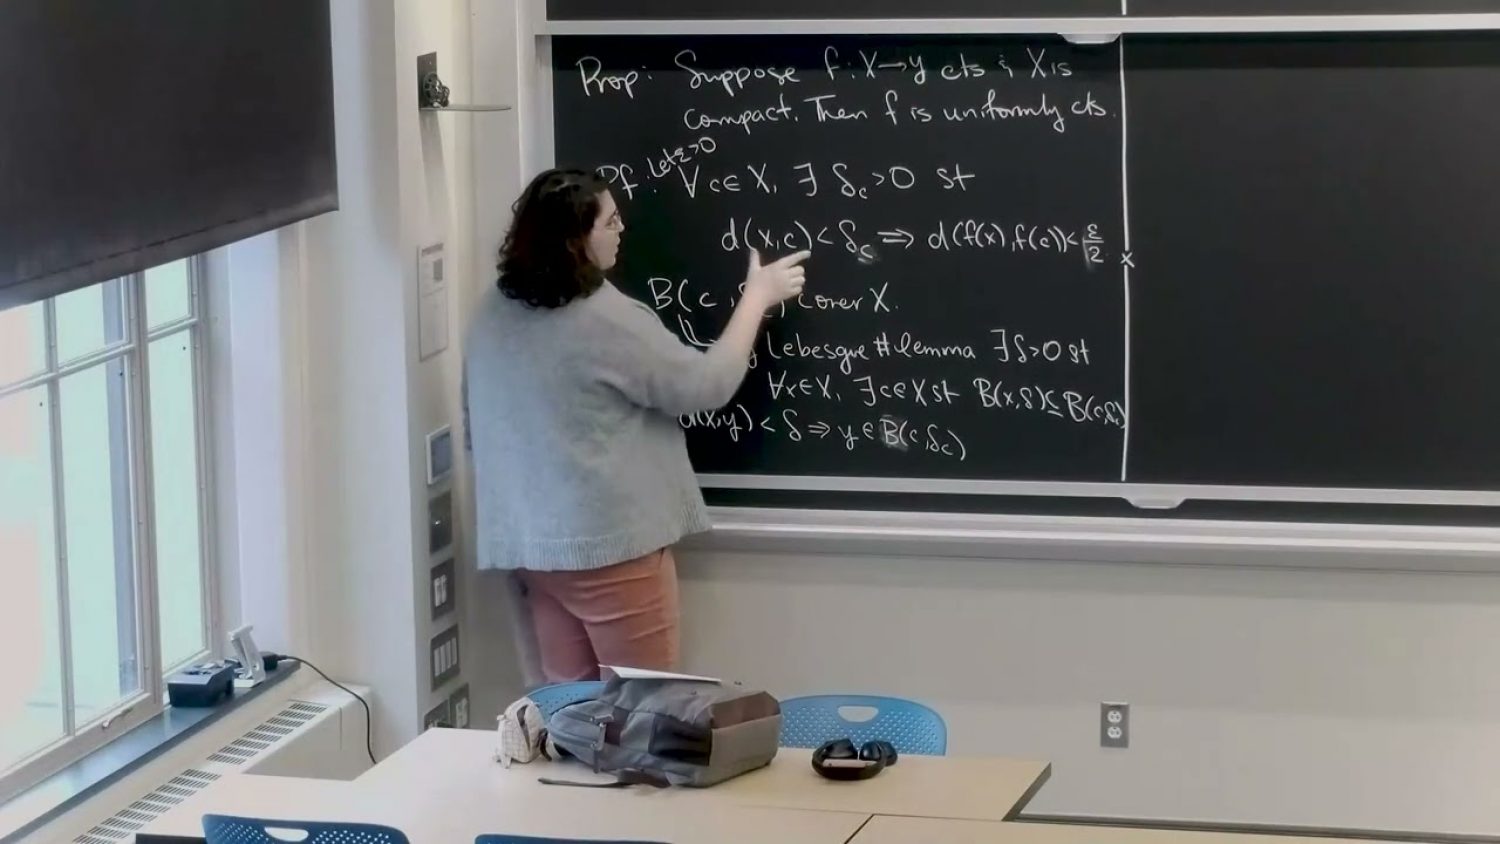 Prop: Suppose f: X→Y cts & X is
compact. Then f is uniformly cts.
Let ε>0
Pf: ∀ c ∈ X, ∃ δ_c > 0 st
d(x,c) < δ_c ⇒ d(f(x), f(c)) < ε/2
B(c, cover X.
Lebesgue # lemma ∃ δ>0 st
∀x∈X, ∃c∈X st B(x,δ) ⊆ B(c,δ_c)
d(x,y) < δ ⇒ y ∈ B(c,δ_c)
x